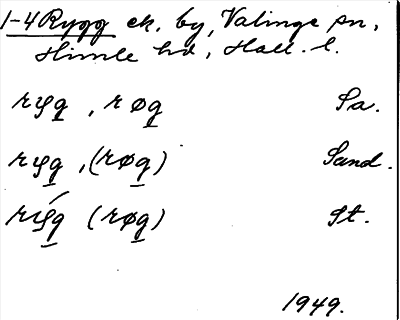 1-4 Rygg ek. by, Valinge sn,
Himle hd, Hall. l.
ryg, røg Sa.
ryg, (røg) Sand.
rýg (røg) St.
1949.